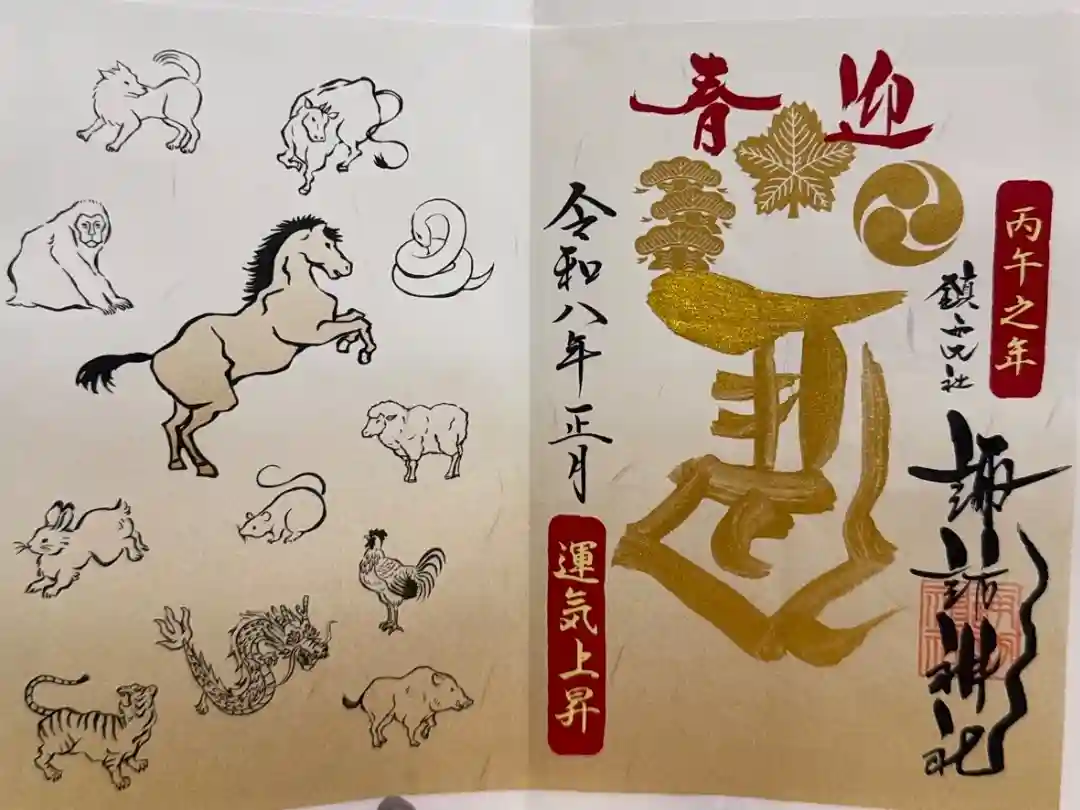 迎春
丙午之年
諏訪神社
令和八年正月
運気上昇